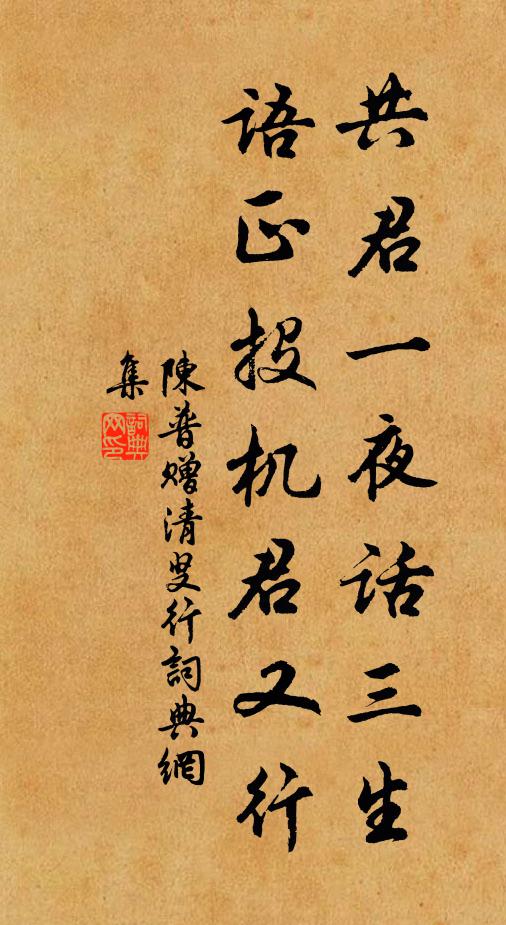 共君一夜话三生
语正投机君又行
陳普赠清叟行詞典網
集
詞典網印